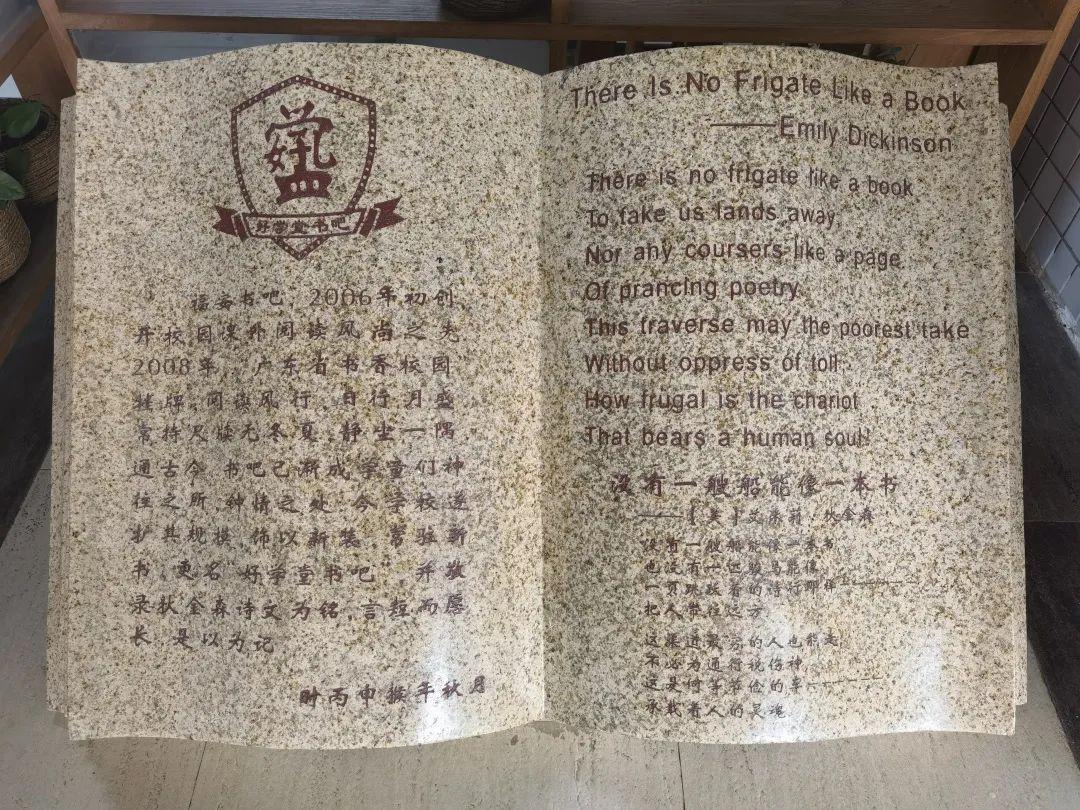 好学堂书吧
书吧，2006年初创，
开校园课外阅读风尚之先
2008年，广东省书香校园
挂牌，阅读风行，日行月盛
常持尺牍无冬夏，静坐一隅
通古今 书吧已渐成学童们神
往之所，钟情之处 今学校遂
扩其规模 饰以新装 常驻新
书，更名“好学堂书吧”，并敬
录狄金森诗文为铭，言短而愿
长 是以为记
时丙申猴年秋月
There Is No Frigate Like a Book
——Emily Dickinson
There is no frigate like a book
To take us lands away,
Nor any coursers like a page
Of prancing poetry.
This traverse may the poorest take
Without oppress of toll;
How frugal is the chariot
That bears a human soul!
没有一艘船能像一本书
——[美]艾米莉·狄金森
没有一艘船能像一本书
也没有一匹骏马能像
一页跳跃着的诗行那样——
把人带往远方
这渠道最穷的人也能走
不必为通行税伤神
这是何等节俭的车——
承载着人的灵魂